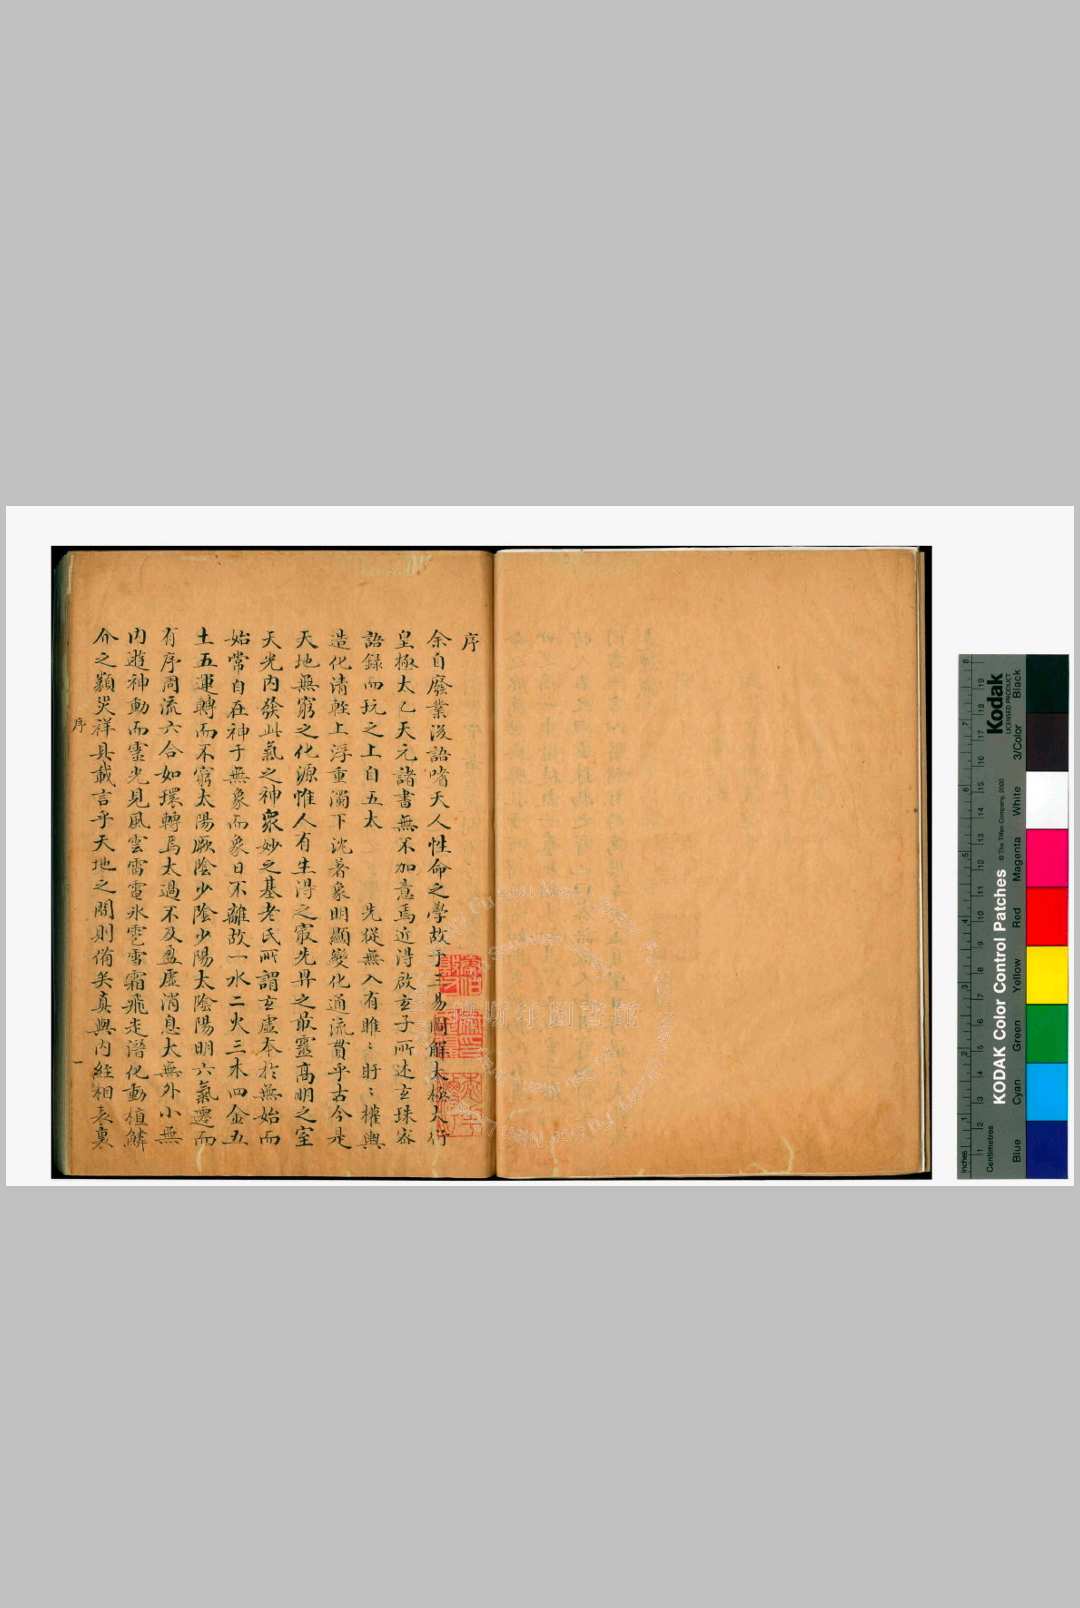 序
余自廢業後語嗜天人性命之學故于三易洞解太極大衍
皇極太乙天元諸書無不加意焉近得啟玄子所述玄珠密
語錄而玩之上自五太 先從無入有睢〻盱〻權輿
造化清輕上浮重濁下沈著象明顯變化通流貫乎古今是
天地無窮之化源惟人有生得之最先昇之最靈高明之室
天光內發此氣之神衆妙之基老氏所謂玄虛本於無始而
始常自在神于無象而象日不離故一水二火三木四金五
土五運轉而不窮太陽厥陰少陰少陽太陰陽明六氣遷而
有序周流六合如環轉焉太過不及盈虛消息大無外小無
內遊神動而靈光見風雲雷電氷雹雪霜飛走潛化動植鱗
介之類災祥具載言乎天地之間則備矣真與內經相表裏
序
一
斯年圖書館
Kodak
LICENSED PRODUCT
KODAK Color Control Patches
© The Tiffen Company, 2000
Inches
Centimetres
Blue
Cyan
Green
Yellow
Red
Magenta
White
3/Color
Black